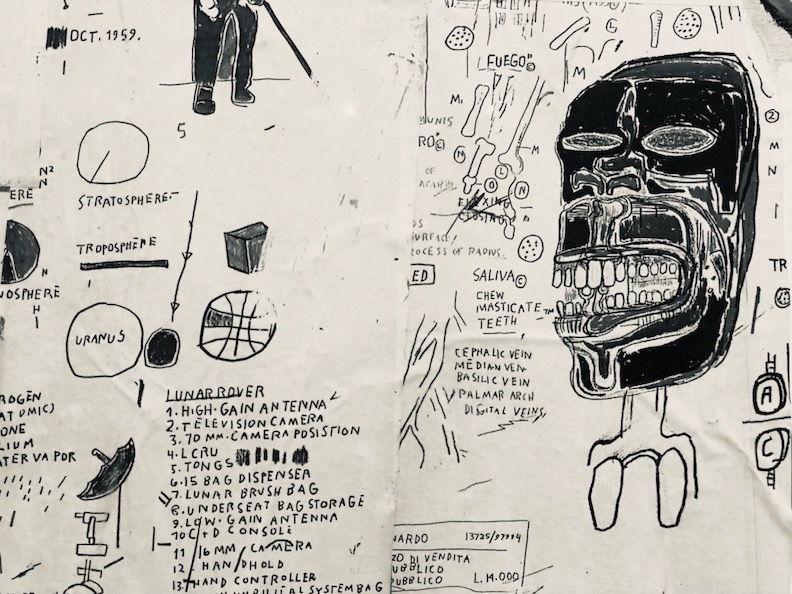 OCT. 1959.
5
N2
N
ERE
STRATOSPHERE
TROPOSPHERE
OSPHERE
H
I
URANUS
ROGEN
ATOMIC)
ONE
LIUM
ATER VAPOR
LUNAR ROVER
1. HIGH-GAIN ANTENNA
2. TELEVISION CAMERA
3. 70 MM. CAMERA POSISTION
4. LCRU
5. TONGS
6. 15 BAG DISPENSER
7. LUNAR BRUSH BAG
8. UNDERSEAT BAG STORAGE
9. LOW-GAIN ANTENNA
10 C+D CONSOLE
11 16 MM. CAMERA
12 HANDHOLD
13 HAND CONTROLLER
UMBILICAL SYSTEM BAG
G
"FUEGO"©
M
M
UNIS
RO©
M
N
L
O
N
OF
FLEXING
CLOSING
DS
URFACE/
ROCESS OF RADIUS.
ED
SALIVA©
CHEW
MASTICATE™
TEETH
CEPHALIC VEIN
MEDIAN VEN-
BASILIC VEIN
PALMAR ARCH
DIGITAL VEINS,
2
M
N
I
TR
A
C
NARDO 13725/97994
ZO DI VENDITA
UBBLICO
UBBLICO L.14.000